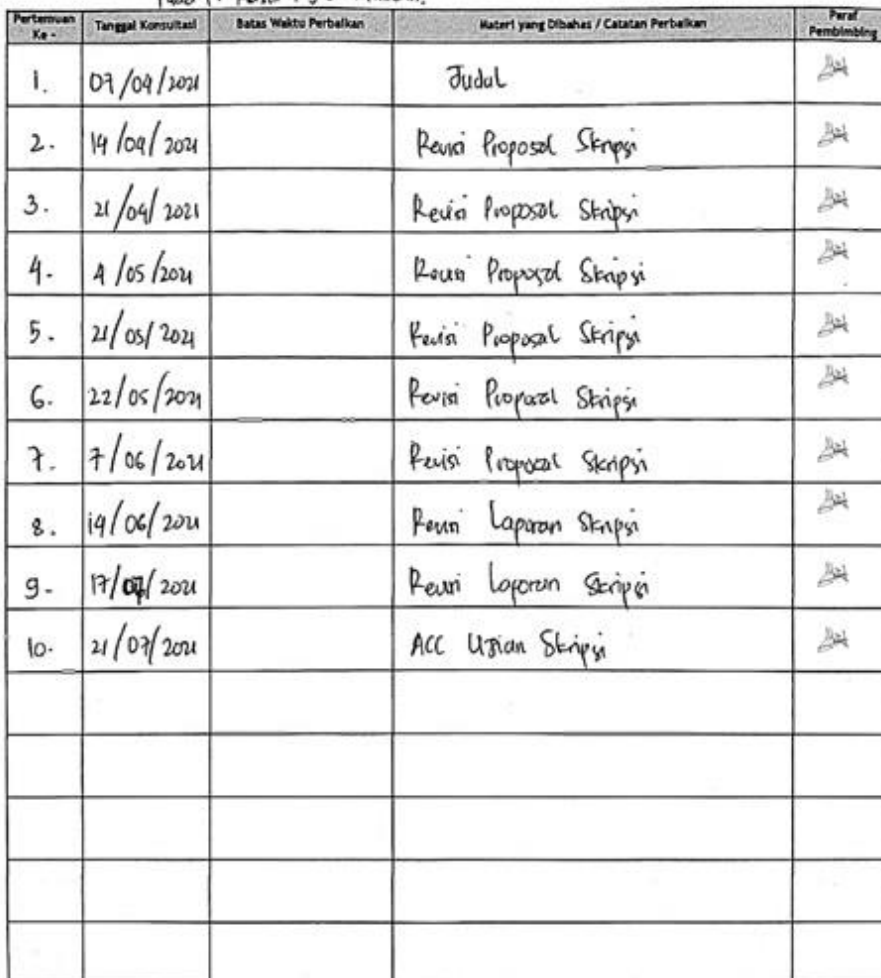 Pertemuan Ke - Tanggal Konsultasi Batas Waktu Perbaikan Materi yang Dibahas / Catatan Perbaikan Paraf Pembimbing
1. 07/04/2021 Judul
2. 14/04/2021 Revisi Proposal Skripsi
3. 21/04/2021 Revisi Proposal Skripsi
4. 4/05/2021 Revisi Proposal Skripsi
5. 21/05/2021 Revisi Proposal Skripsi
6. 22/05/2021 Revisi Proposal Skripsi
7. 7/06/2021 Revisi Proposal Skripsi
8. 14/06/2021 Revisi Laporan Skripsi
9. 17/07/2021 Revisi Laporan Skripsi
10. 21/07/2021 ACC Ujian Skripsi